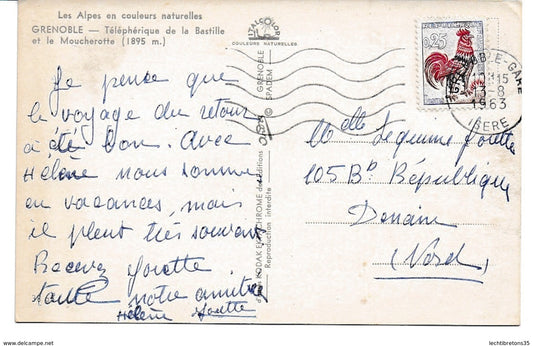 Les Alpes en couleurs naturelles
GRENOBLE — Téléphérique de la Bastille
et le Moucherotte (1895 m.)
COULEURS NATURELLES
0,25
GARE
13-8
1963
ISERE
Je pense que
le voyage du retour
a été bon. Avec
Hélène nous sommes
en vacances, mais
il pleut très souvent
Recevez
toute notre amitié
Hélène
GRENOBLE
© SPADEM
KODAK EKTACHROME des Editions
Reproduction interdite
Melle
105 Bd République
Denain
(Nord)
lechtibretons35